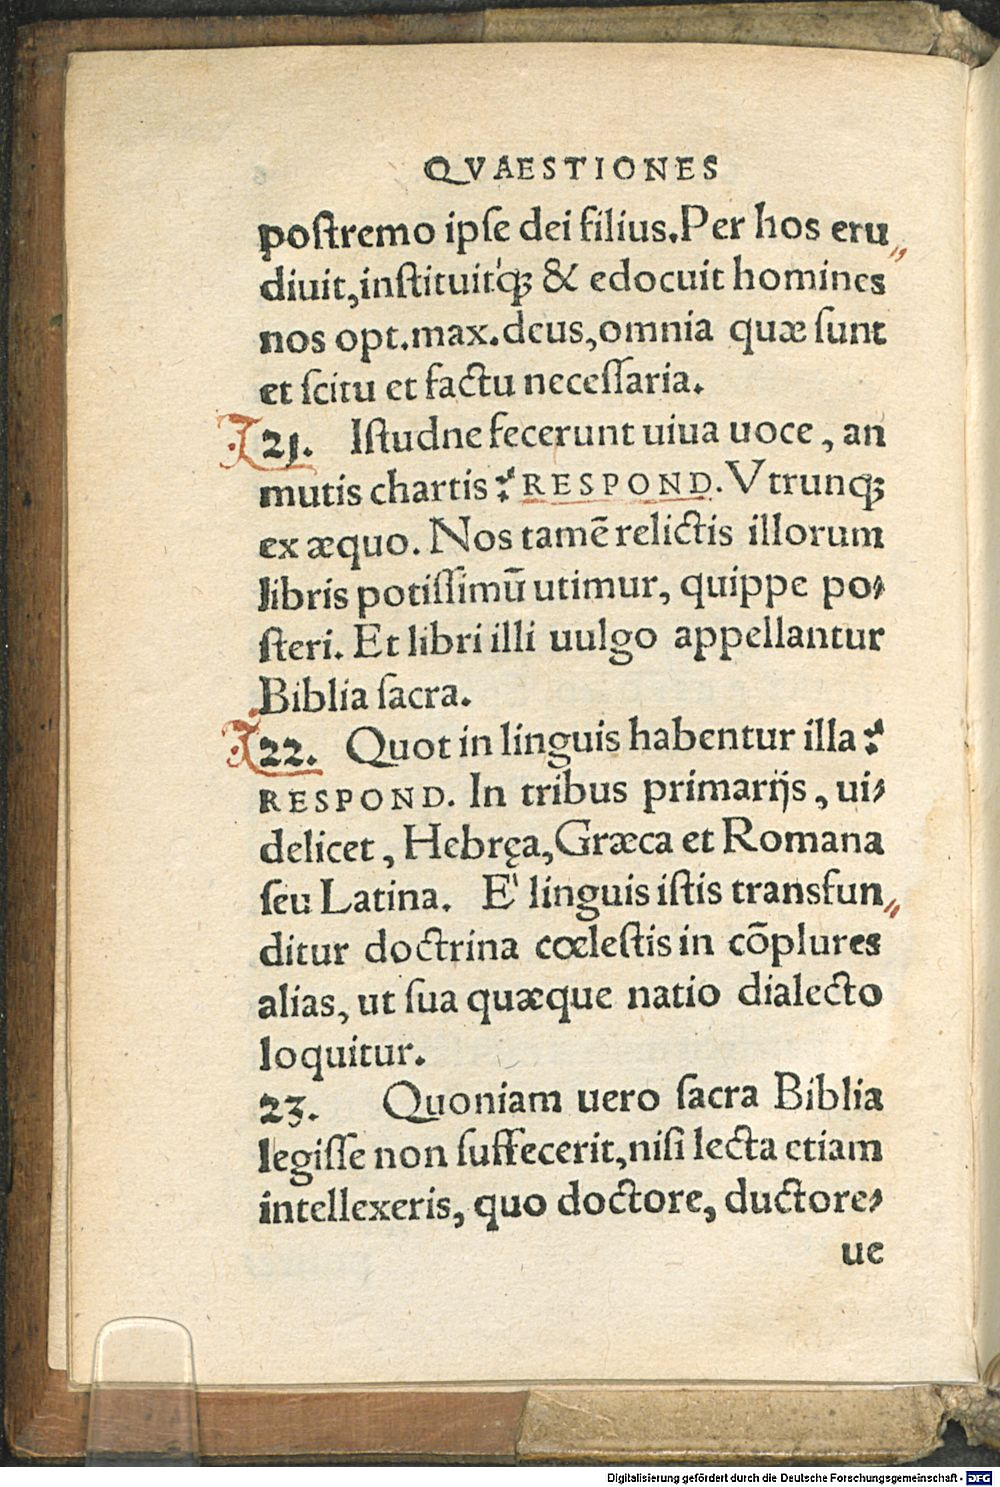 QVAESTIONES
poſtremo ipſe dei filius. Per hos eru„
diuit, inſtituitq́ꝫ & edocuit homines
nos opt. max. deus, omnia quæ ſunt
et ſcitu et factu neceſſaria.
21. Iſtudne fecerunt uiua uoce, an
mutis chartis? RESPOND. Vtrunqꝫ
ex æquo. Nos tamē relictis illorum
libris potiſſimū utimur, quippe po⸗
ſteri. Et libri illi uulgo appellantur
Biblia ſacra.
22. Quot in linguis habentur illa?
RESPOND. In tribus primarijs, ui⸗
delicet, Hebręa, Græca et Romana
ſeu Latina. E' linguis iſtis transfun„
ditur doctrina cœleſtis in cōplures
alias, ut ſua quæque natio dialecto
loquitur.
23. Quoniam uero ſacra Biblia
legiſſe non ſuffecerit, niſi lecta etiam
intellexeris, quo doctore, ductore⸗
ue
Digitalisierung gefördert durch die Deutsche Forschungsgemeinschaft - DFG